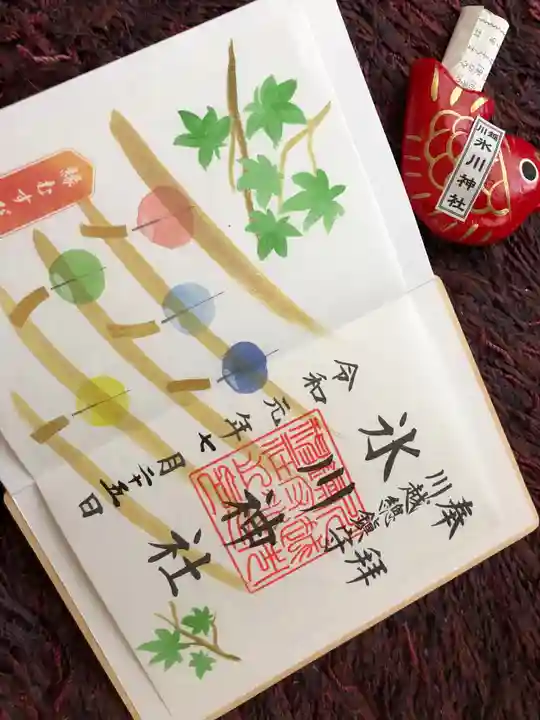 奉拝
川越總鎮守
氷川神社
令和元年七月二十五日
縁むすび
川越
氷川神社